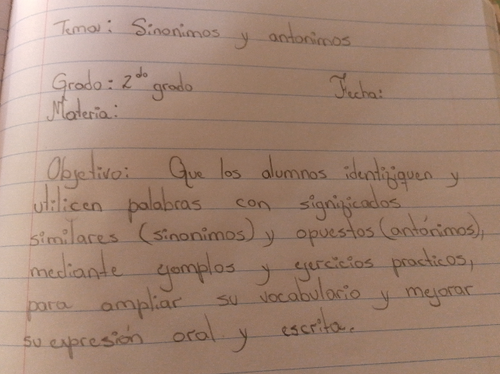 Tema: Sinonimos y antonimos
Grado: 2do grado Fecha:
Materia:
Objetivo: Que los alumnos identifiquen y
utilicen palabras con significados
similares (sinonimos) y opuestos (antónimos),
mediante ejemplos y ejercicios practicos,
para ampliar su vocabulario y mejorar
su expresión oral y escrita.